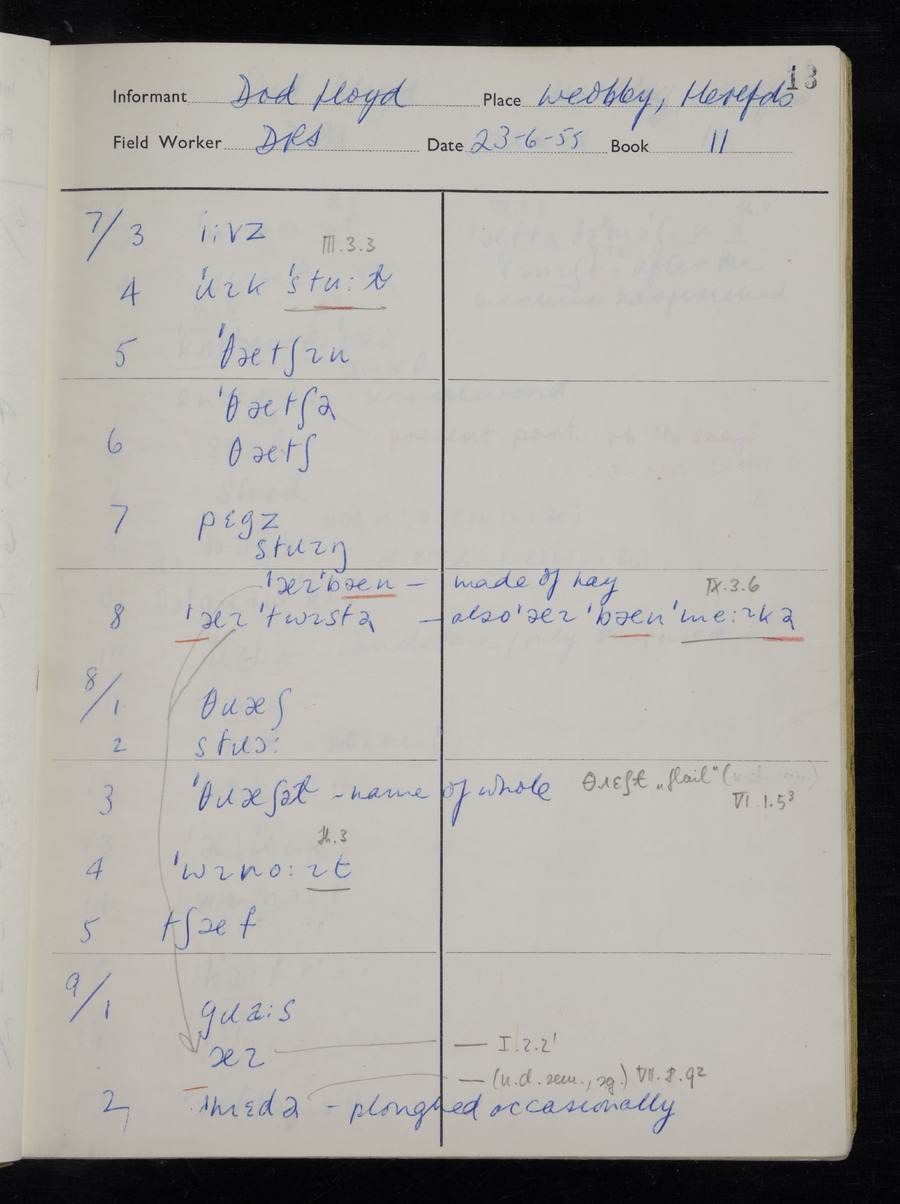 13
Informant Dod Lloyd Place Weobley, Herefds
Field Worker DRS Date 23-6-55 Book 11
7/3 i:vz
III.3.3
4
5 ˈθætʃɪn
ˈθætʃə
6 θætʃ
7 pɛgz
stɹɪŋ
ˈæɪˈbæn — made of hay
IX.3.6
8 ˈæɪˈtwɪstə — also ˈæɪˈbænˈme:ɪkə
8/1 θɹæʃ
2 stɹɔ:
3 ˈθɹæʃəɫ - name of whole θɹɛʃɫ „flail"
VI.1.5³
4 ˈwɪno:ɪt
5 tʃæf
9/1 gɹa:s
æɪ — I.2.2'
— VII.8.92
2 mɛdə - ploughed occasionally